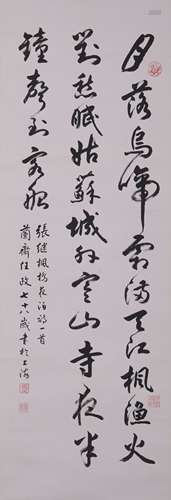 月落烏啼霜滿天江楓漁火
對愁眠姑蘇城外寒山寺夜半
鐘聲到客船
張繼楓橋夜泊詩一首
蘭齋任政七十八歲書於上海